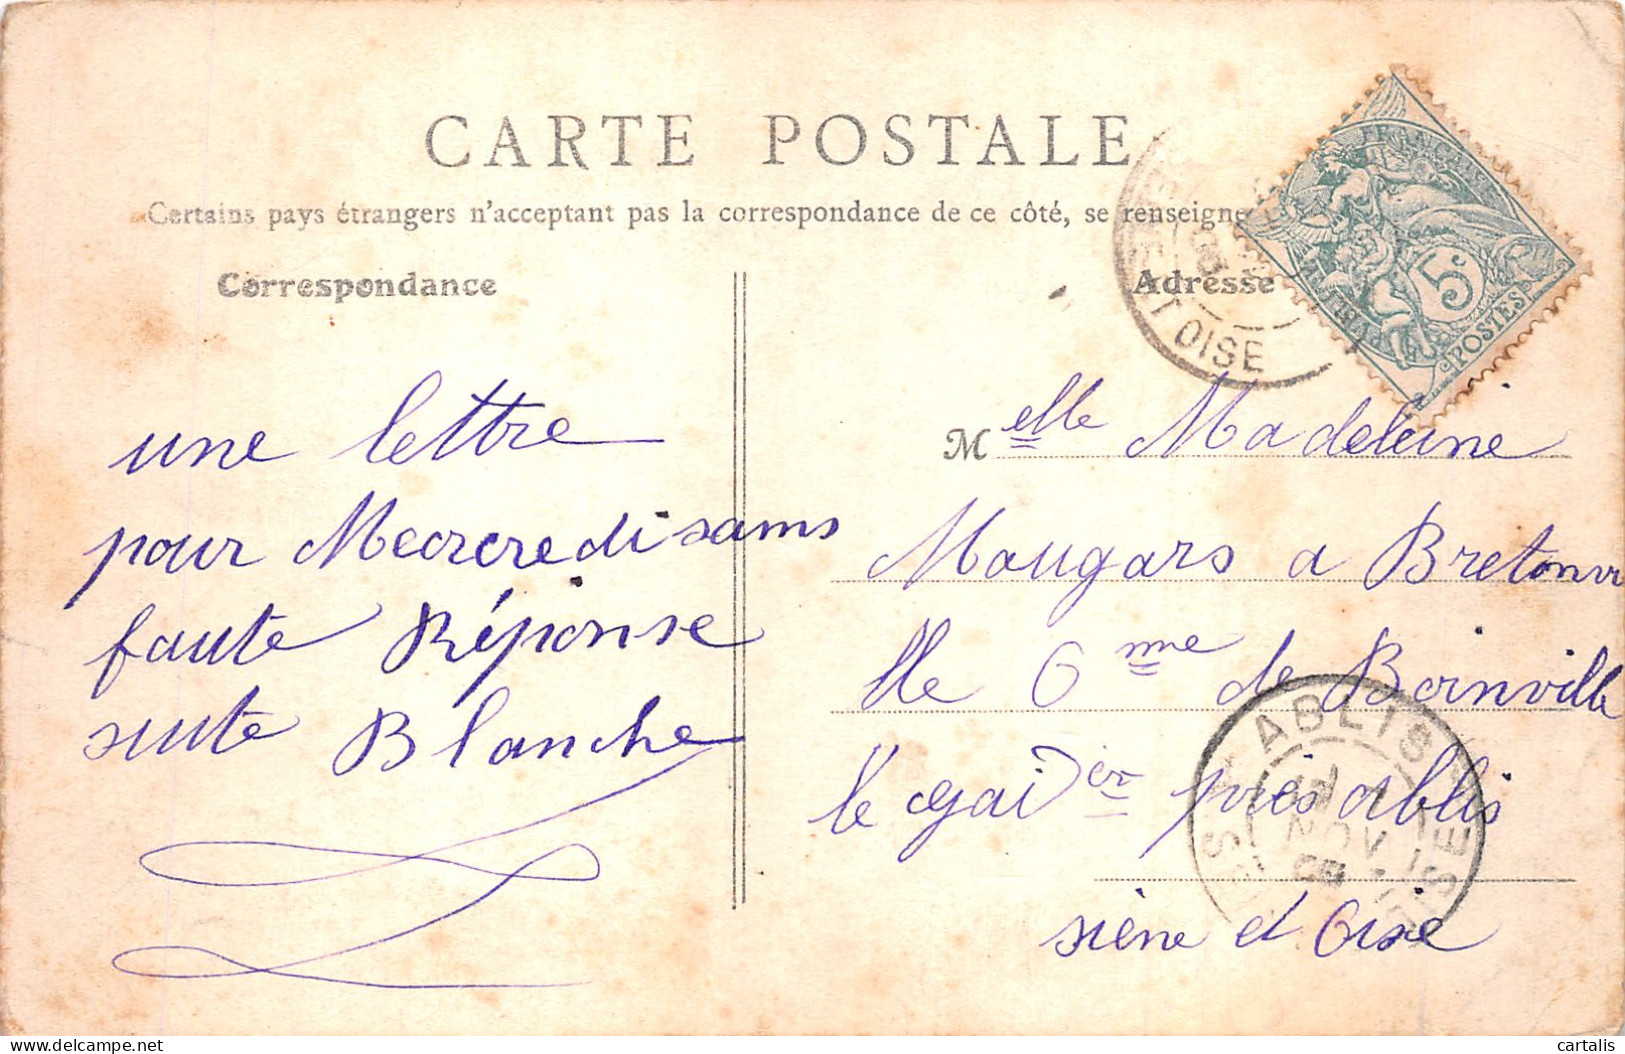 CARTE POSTALE
Certains pays étrangers n'acceptant pas la correspondance de ce côté, se renseigne
Correspondance
Adresse
ET OISE
RÉPUBLIQUE FRANÇAISE
5c
POSTES
une lettre
pour Mecrcredi sams
faute Réponse
suite Blanche
Melle Madeleine
Mougars a Bretonvi
lle Cmme de Boinville
le gaider près ablis
siène et Oise
ABLIS
NOV
OISE
cartalis
delcampe.net